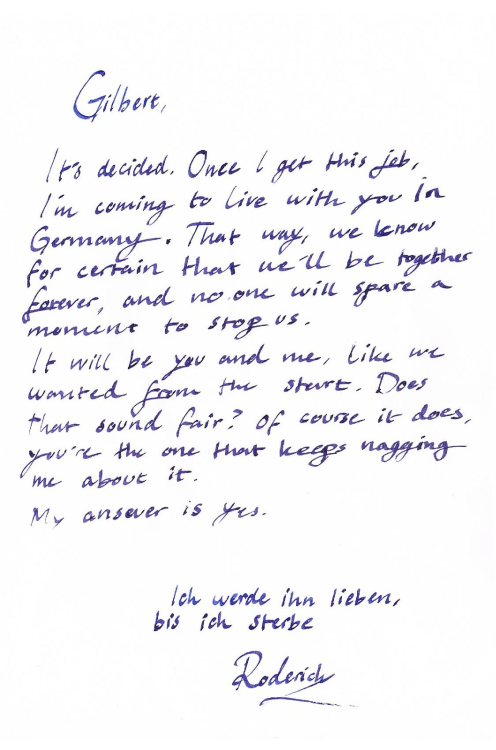 Gilbert,
It's decided. Once I get this job,
I'm coming to live with you in
Germany. That way, we know
for certain that we'll be together
forever, and no one will spare a
moment to stop us.
It will be you and me, like we
wanted from the start. Does
that sound fair? Of course it does,
you're the one that keeps nagging
me about it.
My answer is yes.
Ich werde ihn lieben,
bis ich sterbe
Roderich